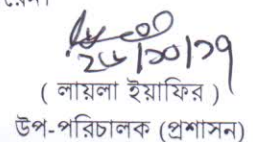 ২৬/১০/১৭
( লায়লা ইয়াফির )
উপ-পরিচালক (প্রশাসন)